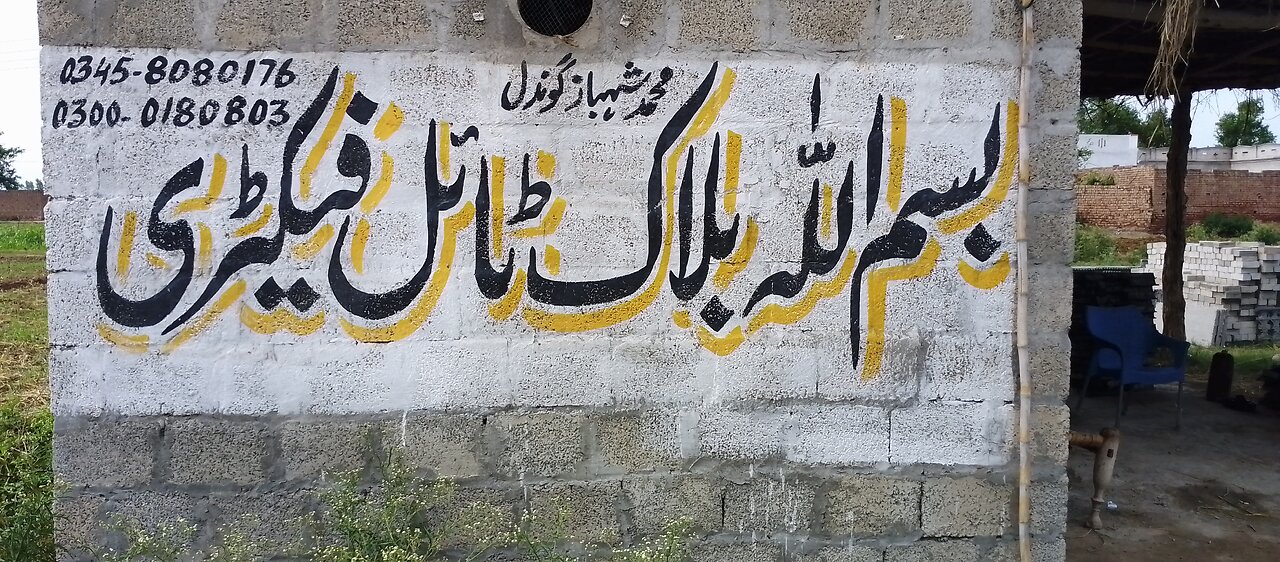 0345-8080176
0300-0180803
محمد شہباز گوندل
بسم اللہ بلاک ٹائل فیکٹری